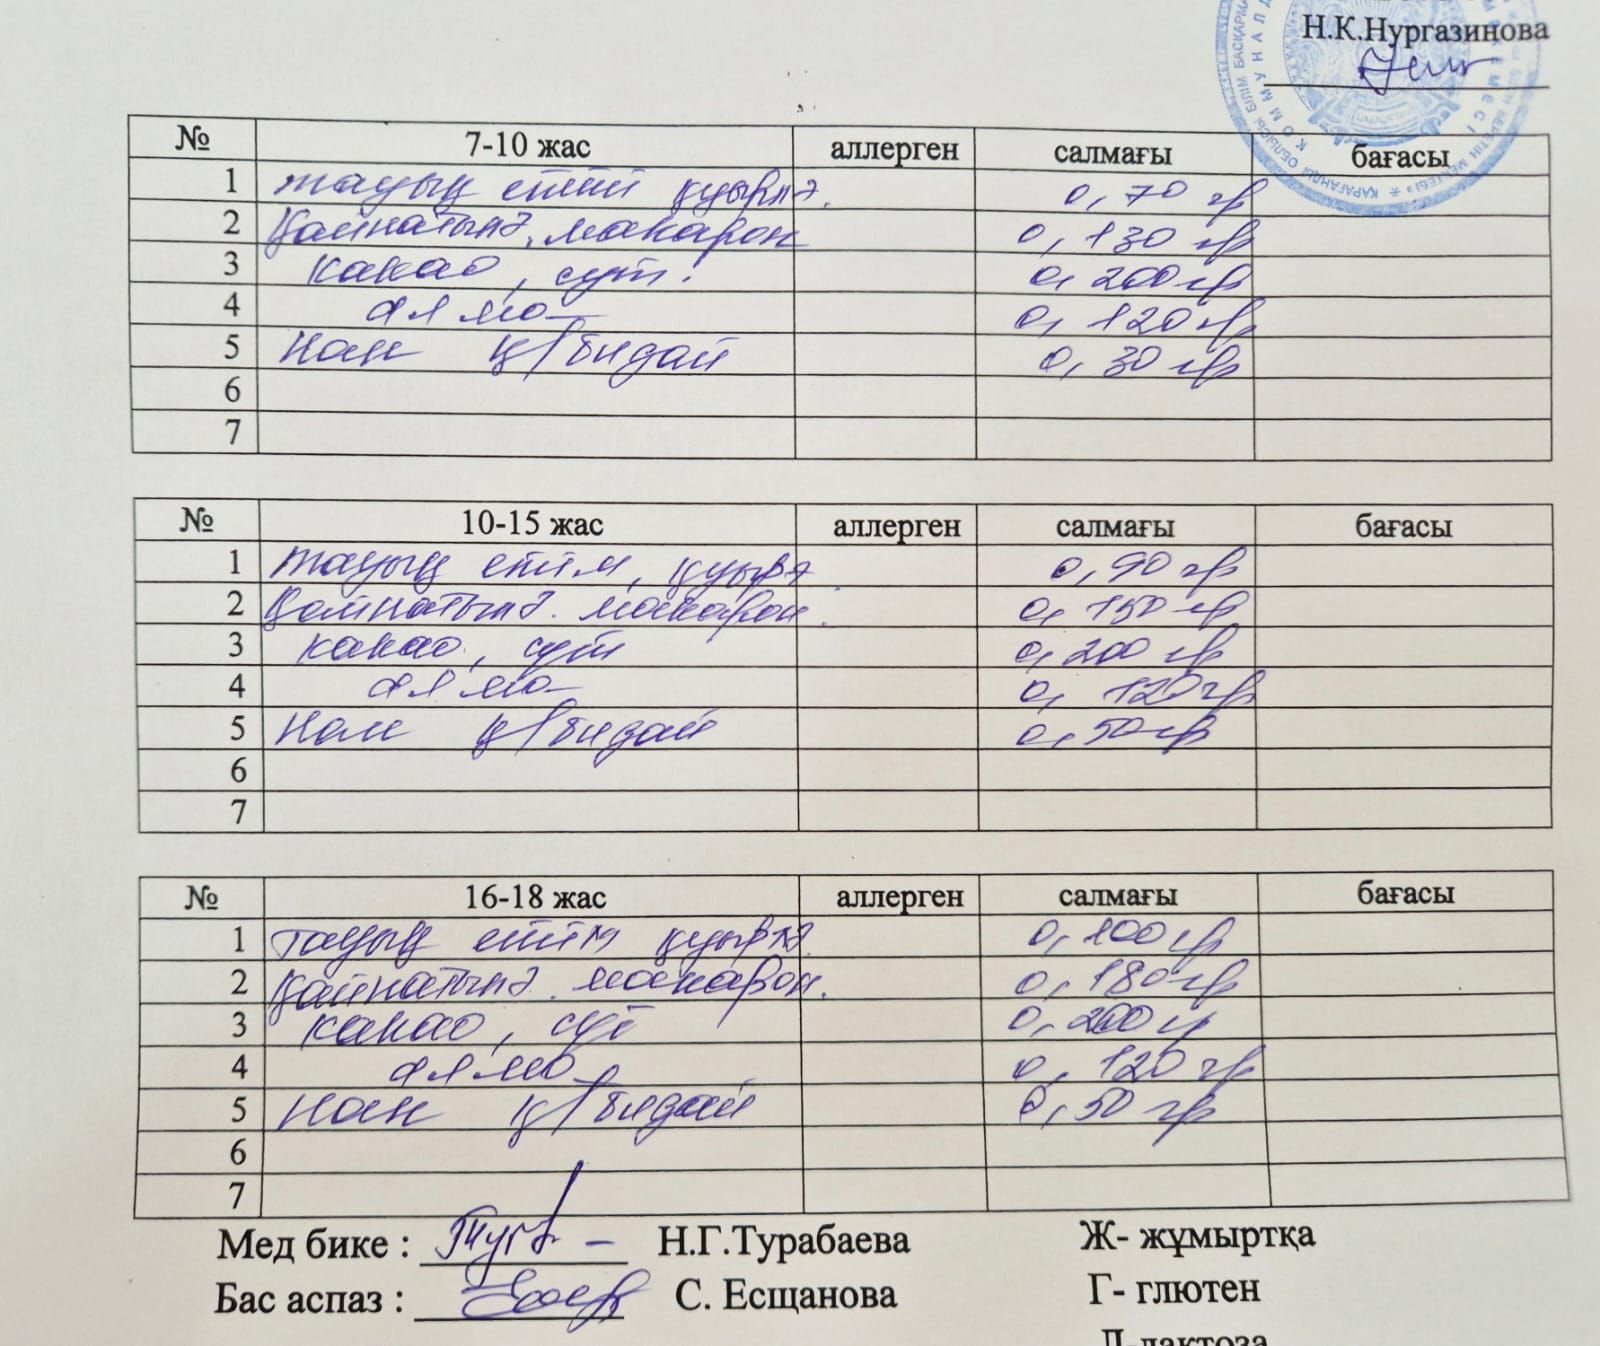 Н.К.Нургазинова
№ 7-10 жас аллерген салмағы бағасы
1 тауық етті қуырм. 0,70 гр
2 Қайнатылғ. макарон 0,130 гр
3 какао, сүт. 0,200 гр
4 алма 0,120 гр
5 Нан қ/бидай 0,30 гр
6
7
№ 10-15 жас аллерген салмағы бағасы
1 тауық етім, қуыр 0,90 гр
2 Қайнатылғ. макарон. 0,150 гр
3 какао, сүт 0,200 гр
4 алма 0,120 гр
5 Нан қ/бидай 0,50 гр
6
7
№ 16-18 жас аллерген салмағы бағасы
1 тауық етім қуырм. 0,100 гр
2 Қайнатылғ. макарон. 0,180 гр
3 какао, сүт 0,200 г
4 алма 0,120 гр
5 Нан қ/бидай 0,50 гр
6
7
Мед бике : Н.Г.Турабаева Ж- жұмыртқа
Бас аспаз : С. Есщанова Г- глютен
Л-лактоза